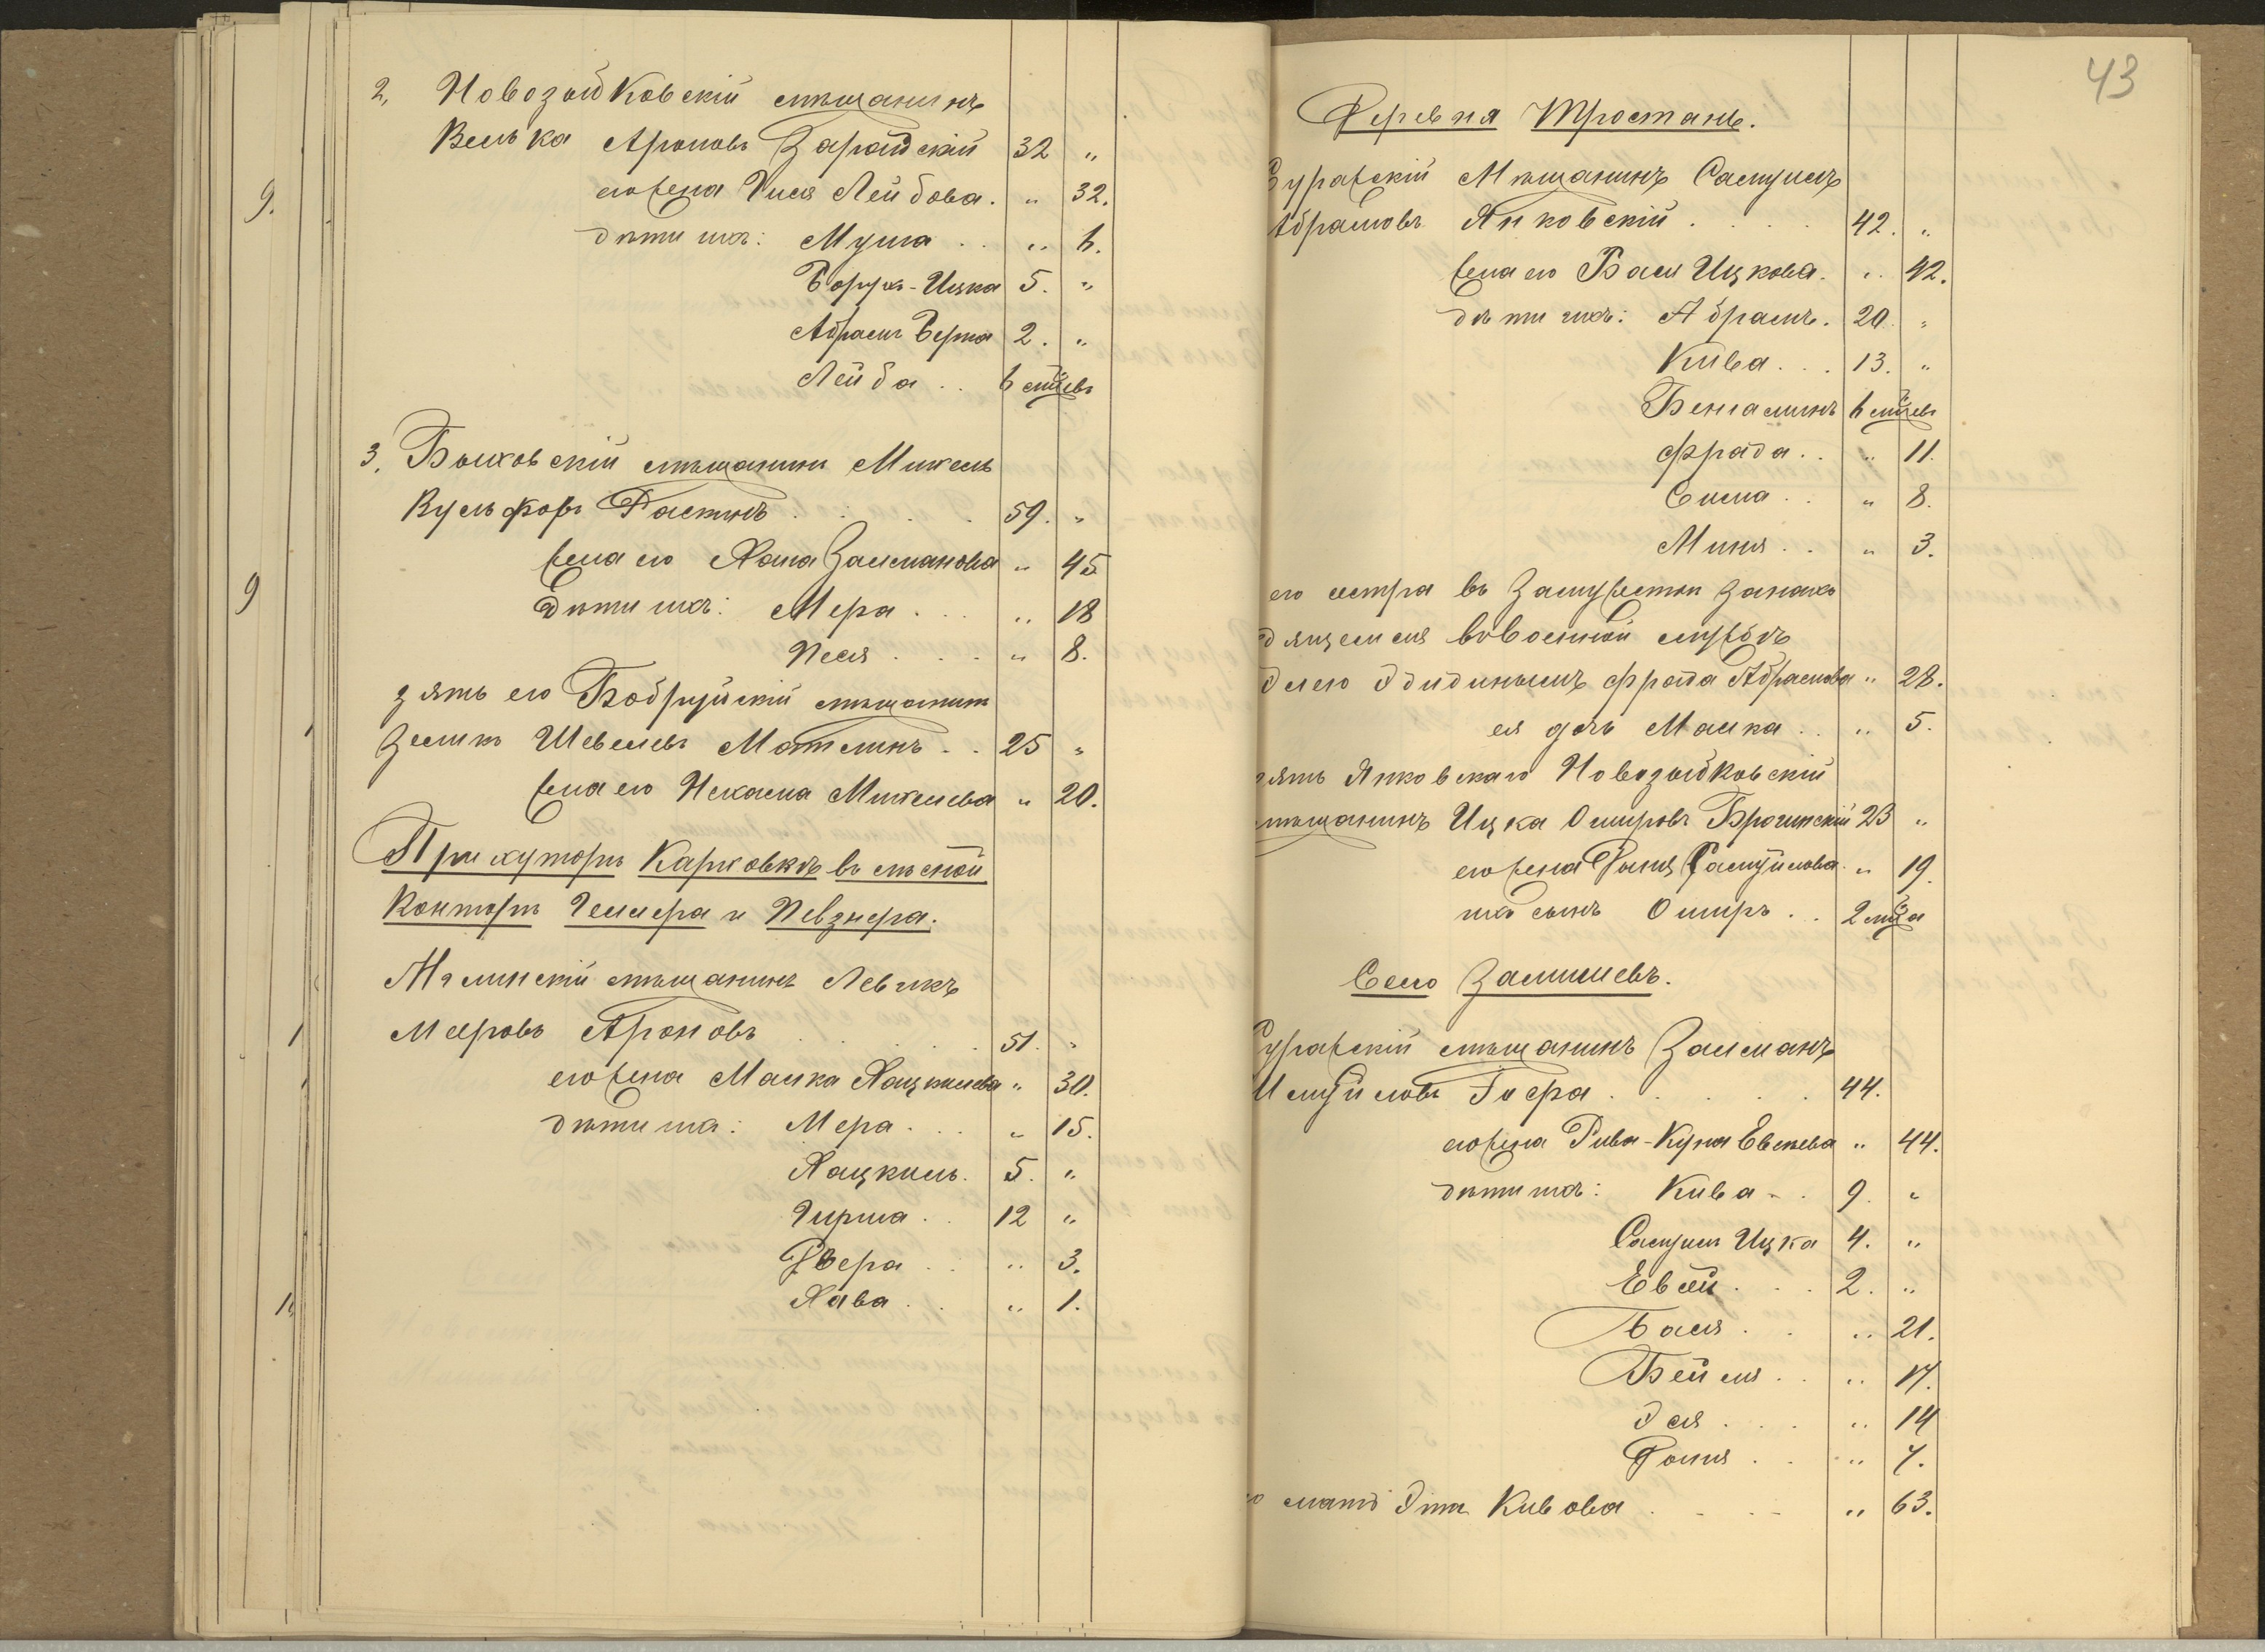 2, Новозыбковскій мѣщанинъ
Велька Ароновъ Зарайскій 32 "
его жена Гися Лейбова. " 32.
дѣти ихъ: Муша . . " 6.
Борух-Ицка 5. "
Абрамъ Берка 2. "
Лейба . . 6 мѣсцевъ
3. Быховскій мѣщанинъ Михель
Вульфовъ Растинъ . . . . 59. "
жена его Хана Залманова " 45
Дѣти ихъ: Мера . . . " 18
Песя . . . " 8.
зять его Бобруйскій мѣщанинъ
Зеликъ Шевелевъ Мотлинъ . . 25 "
жена его Нехама Михелева " 20.
При хуторѣ Карповкѣ въ лѣсной
Конторѣ Геллера и Певзнера.
Мглинскій мѣщанинъ Левикъ
Мееровъ Ароновъ . . . . 51. "
его жена Малка Хацкилева " 30.
дѣти ихъ: Мера . . . " 15.
Хацкиль. 5. "
Гирша . . 12 "
Двера . . " 3.
Хава . . " 1.
9.
9
1
1
43
Деревня Тростань.
Суражскій Мѣщанинъ Самуилъ
Абрамовъ Янковскій . . . . 42. "
жена его Бася Ицкова. " 42.
дѣти ихъ: Абрамъ. 20. "
Кива . . . 13. "
Беньаминъ 6 мѣсцевъ
Фрада . . " 11.
Сима . . " 8.
Миня . . " 3.
его сестра въ замужестви за нахо
дящемся в военной службѣ
Фрада Абрамова " 28.
ея дочь Малка . . " 5.
зять Янковскаго Новозыбковскій
мѣщанинъ Ицка Ошеровъ Брогинскій 23 "
его жена Роня Самуйлова " 19.
ихъ сынъ Ошеръ . . 2 мѣсца
Село Замишевъ.
Суражскій мѣщанинъ Залманъ
Шмуйловъ Гиера . . . . . 44.
его жена Рива-Куна Евсеева " 44.
дѣти ихъ: Кива . . 9. "
Самуил Ицка 4. "
Евсей . . . 2. "
Бася . . " 21.
Бейля . . " 17.
Эся . . . " 14
Роня . . " 7.
мать Эта Кивова . . . . " 63.